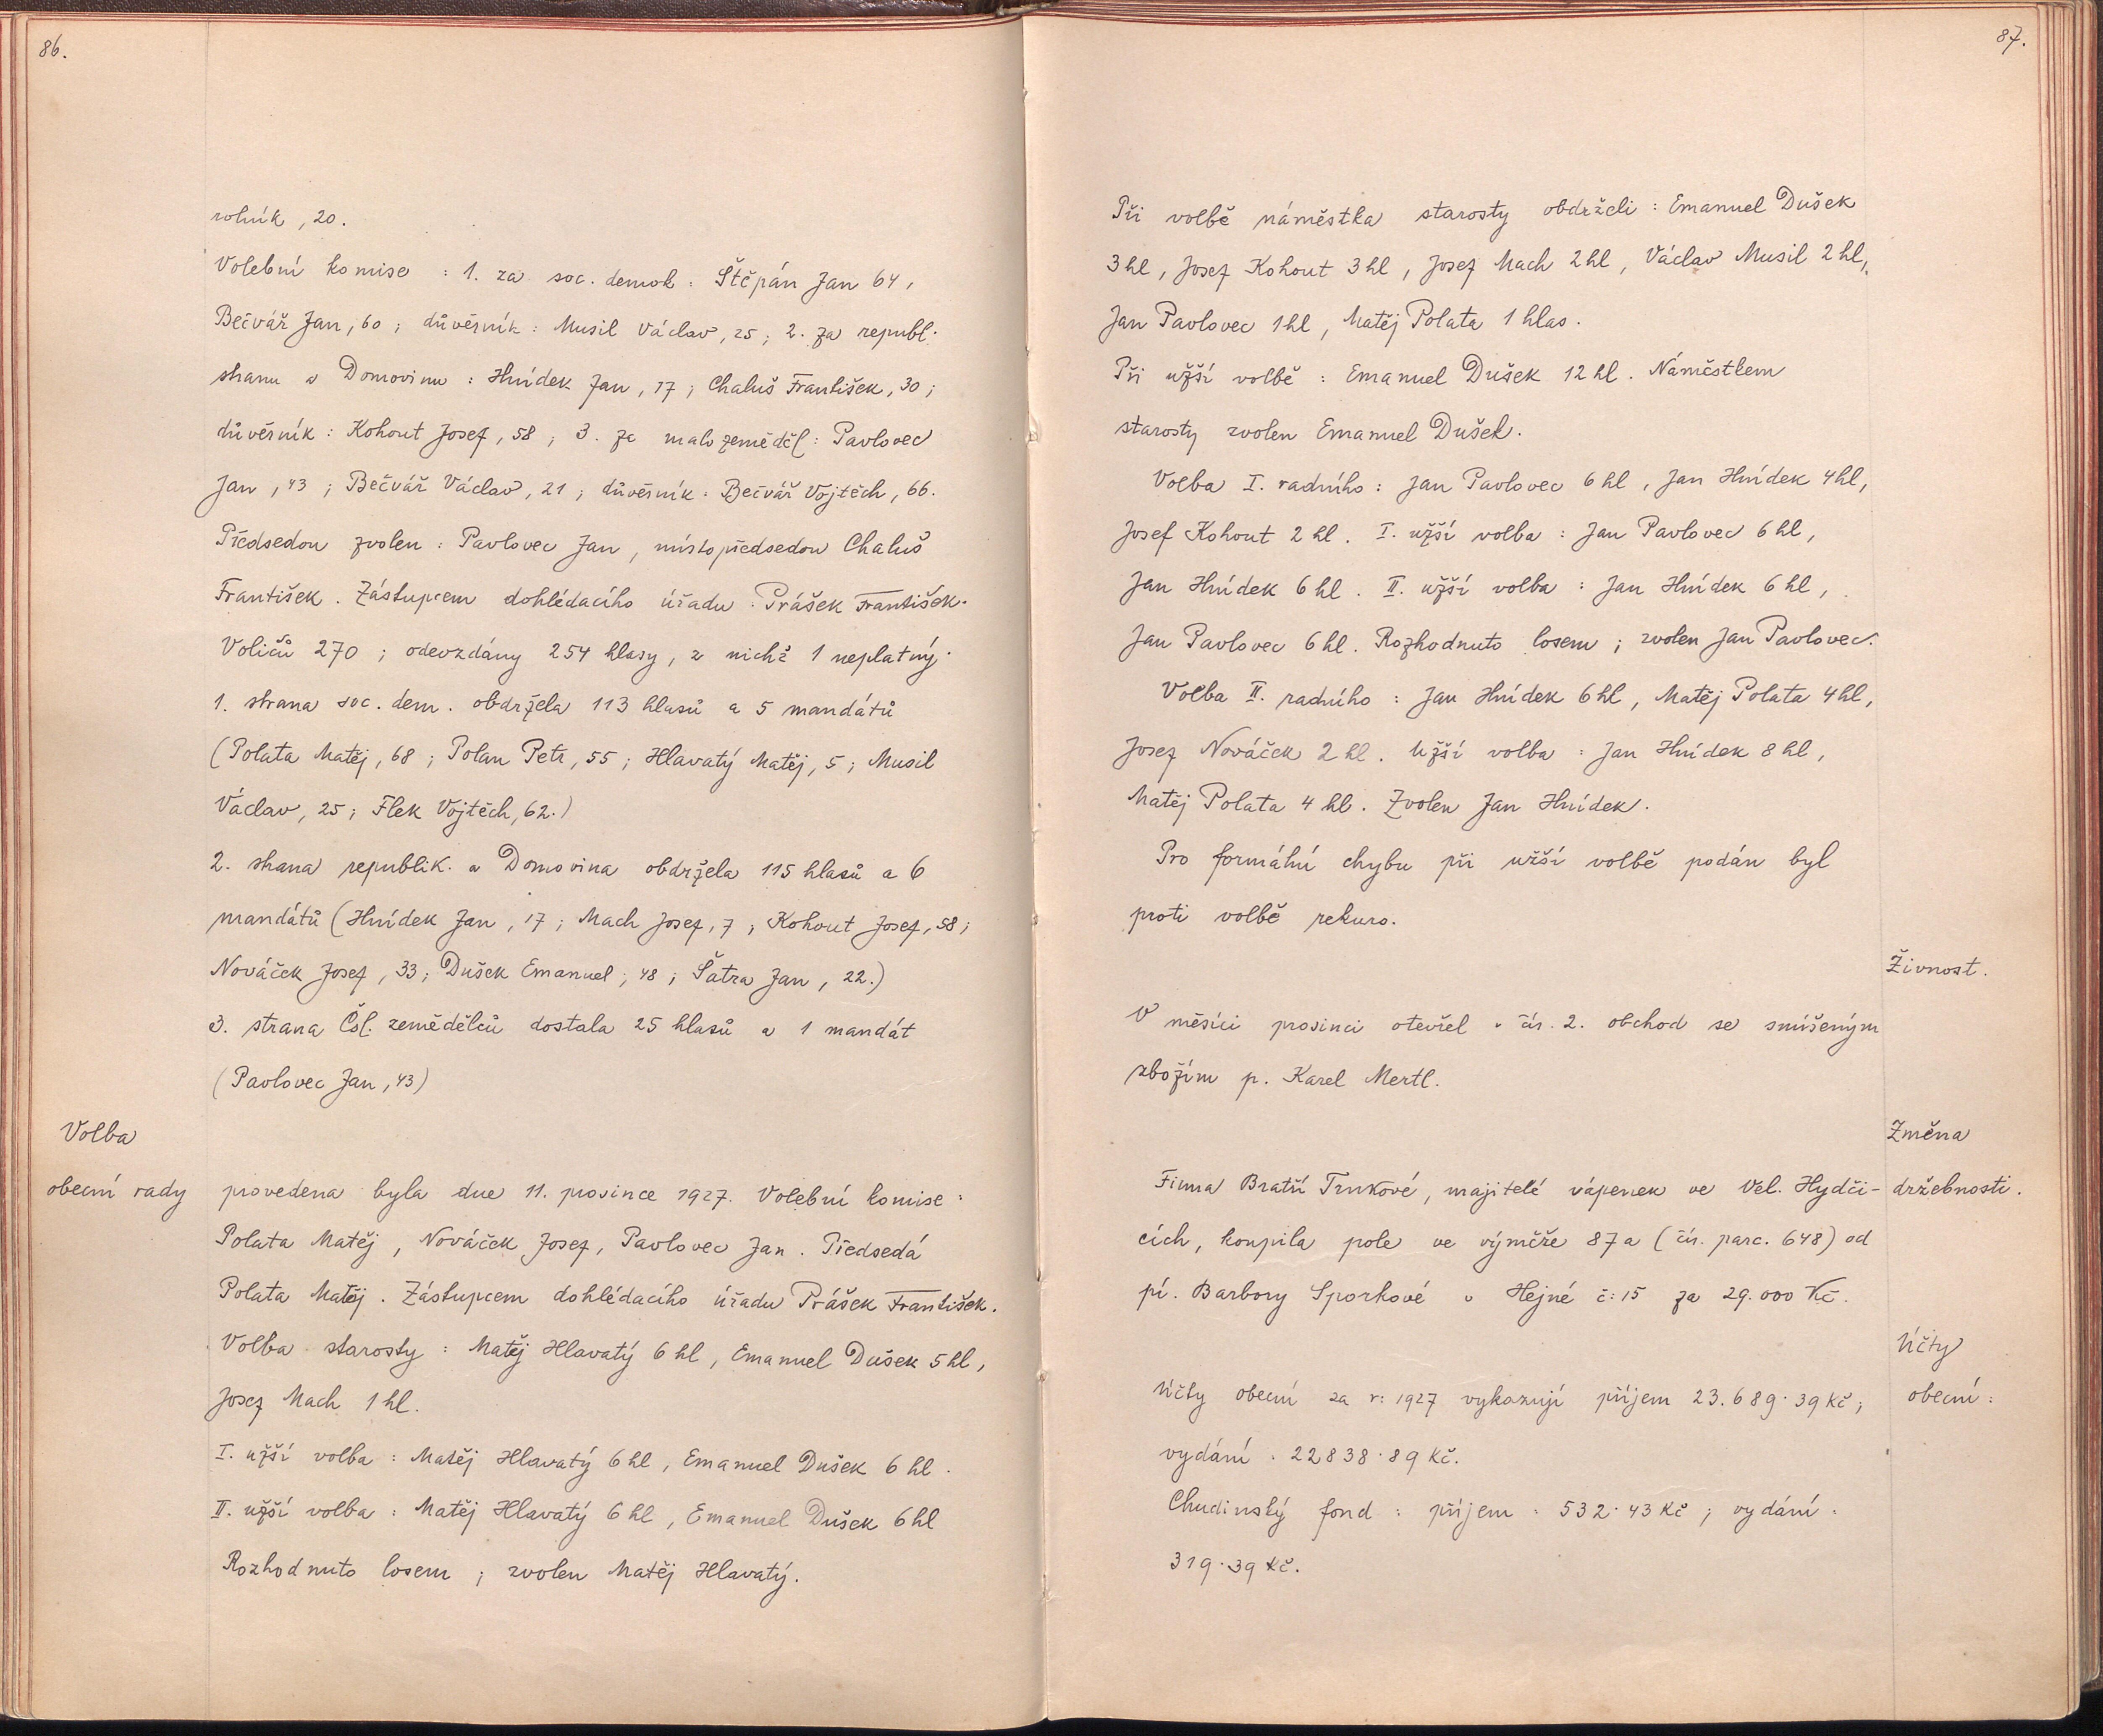 86.
rolník, 20.
Volební komise : 1. za soc. demok : Štěpán Jan 64,
Bečvář Jan, 60 ; důvěrník : Musil Václav, 25 ; 2. za republ.
stranu a Domovinu : Hnídek Jan, 17 ; Chaluš František, 30 ;
důvěrník : Kohout Josef, 58 ; 3. za malozeměděl : Pavlovec
Jan, 43 ; Bečvář Václav, 21 ; důvěrník : Bečvář Vojtěch, 66.
Předsedou zvolen : Pavlovec Jan, místopředsedou Chaluš
František. Zástupcem dohlédacího úřadu : Prášek František.
Voličů 270 ; odevzdány 254 hlasy, z nichž 1 neplatný.
1. strana soc. dem. obdržela 113 hlasů a 5 mandátů
(Polata Matěj, 68 ; Polan Petr, 55 ; Hlavatý Matěj, 5 ; Musil
Václav, 25 ; Flek Vojtěch, 62.)
2. strana republik. a Domovina obdržela 115 hlasů a 6
mandátů (Hnídek Jan, 17 ; Mach Josef, 7 ; Kohout Josef, 58 ;
Nováček Josef, 33 ; Dušek Emanuel, 48 ; Šatra Jan, 22.)
3. strana Čsl. zemědělců dostala 25 hlasů a 1 mandát
(Pavlovec Jan, 43)
Volba
obecní rady provedena byla dne 11. prosince 1927. Volební komise :
Polata Matěj, Nováček Josef, Pavlovec Jan. Předsedá
Polata Matěj. Zástupcem dohlédacího úřadu Prášek František.
Volba starosty : Matěj Hlavatý 6 hl, Emanuel Dušek 5 hl,
Josef Mach 1 hl.
I. užší volba : Matěj Hlavatý 6 hl, Emanuel Dušek 6 hl.
II. užší volba : Matěj Hlavatý 6 hl, Emanuel Dušek 6 hl
Rozhodnuto losem ; zvolen Matěj Hlavatý.
87.
Při volbě náměstka starosty obdrželi : Emanuel Dušek
3 hl, Josef Kohout 3 hl, Josef Mach 2 hl, Václav Musil 2 hl,
Jan Pavlovec 1 hl, Matěj Polata 1 hlas.
Při užší volbě : Emanuel Dušek 12 hl. Náměstkem
starosty zvolen Emanuel Dušek.
Volba I. radního : Jan Pavlovec 6 hl, Jan Hnídek 4 hl,
Josef Kohout 2 hl. I. užší volba : Jan Pavlovec 6 hl,
Jan Hnídek 6 hl. II. užší volba : Jan Hnídek 6 hl,
Jan Pavlovec 6 hl. Rozhodnuto losem ; zvolen Jan Pavlovec.
Volba II. radního : Jan Hnídek 6 hl, Matěj Polata 4 hl,
Josef Nováček 2 hl. Užší volba : Jan Hnídek 8 hl,
Matěj Polata 4 hl. Zvolen Jan Hnídek.
Pro formální chybu při užší volbě podán byl
proti volbě rekurs.
Živnost.
V měsíci prosinci otevřel v čís. 2. obchod se smíšeným
zbožím p. Karel Mertl.
Změna
Firma Bratří Trnkové, majitelé vápenek ve Vel. Hydči- držebnosti.
cích, koupila pole ve výměře 87 a (čís. parc. 648) od
pí. Barbory Sporkové v Hejné č: 15 za 29.000 Kč.
Účty
Účty obecní za r: 1927 vykazují příjem 23.689·39 Kč ; obecní :
vydání : 22838·89 Kč.
Chudinský fond : příjem : 532·43 Kč ; vydání :
319·39 Kč.